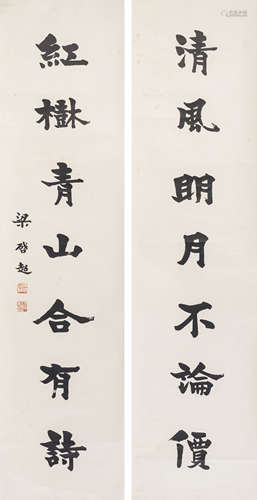 清風明月不論價
紅樹青山合有詩
梁啓超